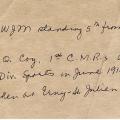 WJM standing 5th from
D. Coy, 1st C.M.R.s
Div Sports in June 191
ken at Erny-St Julian